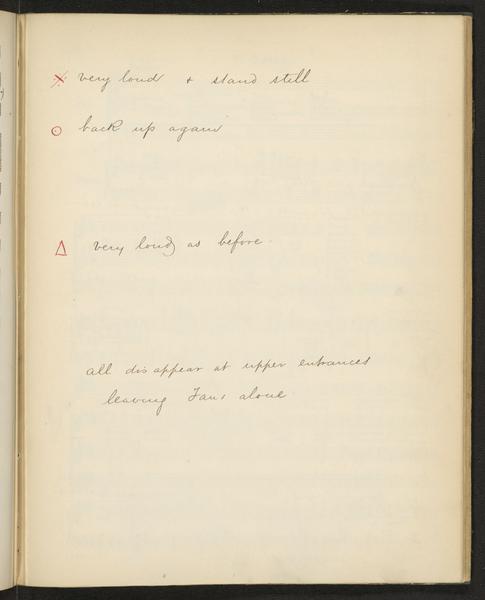 very loud & stand still
back up again
very loud as before
all disappear at upper entrances
leaving Faus alone